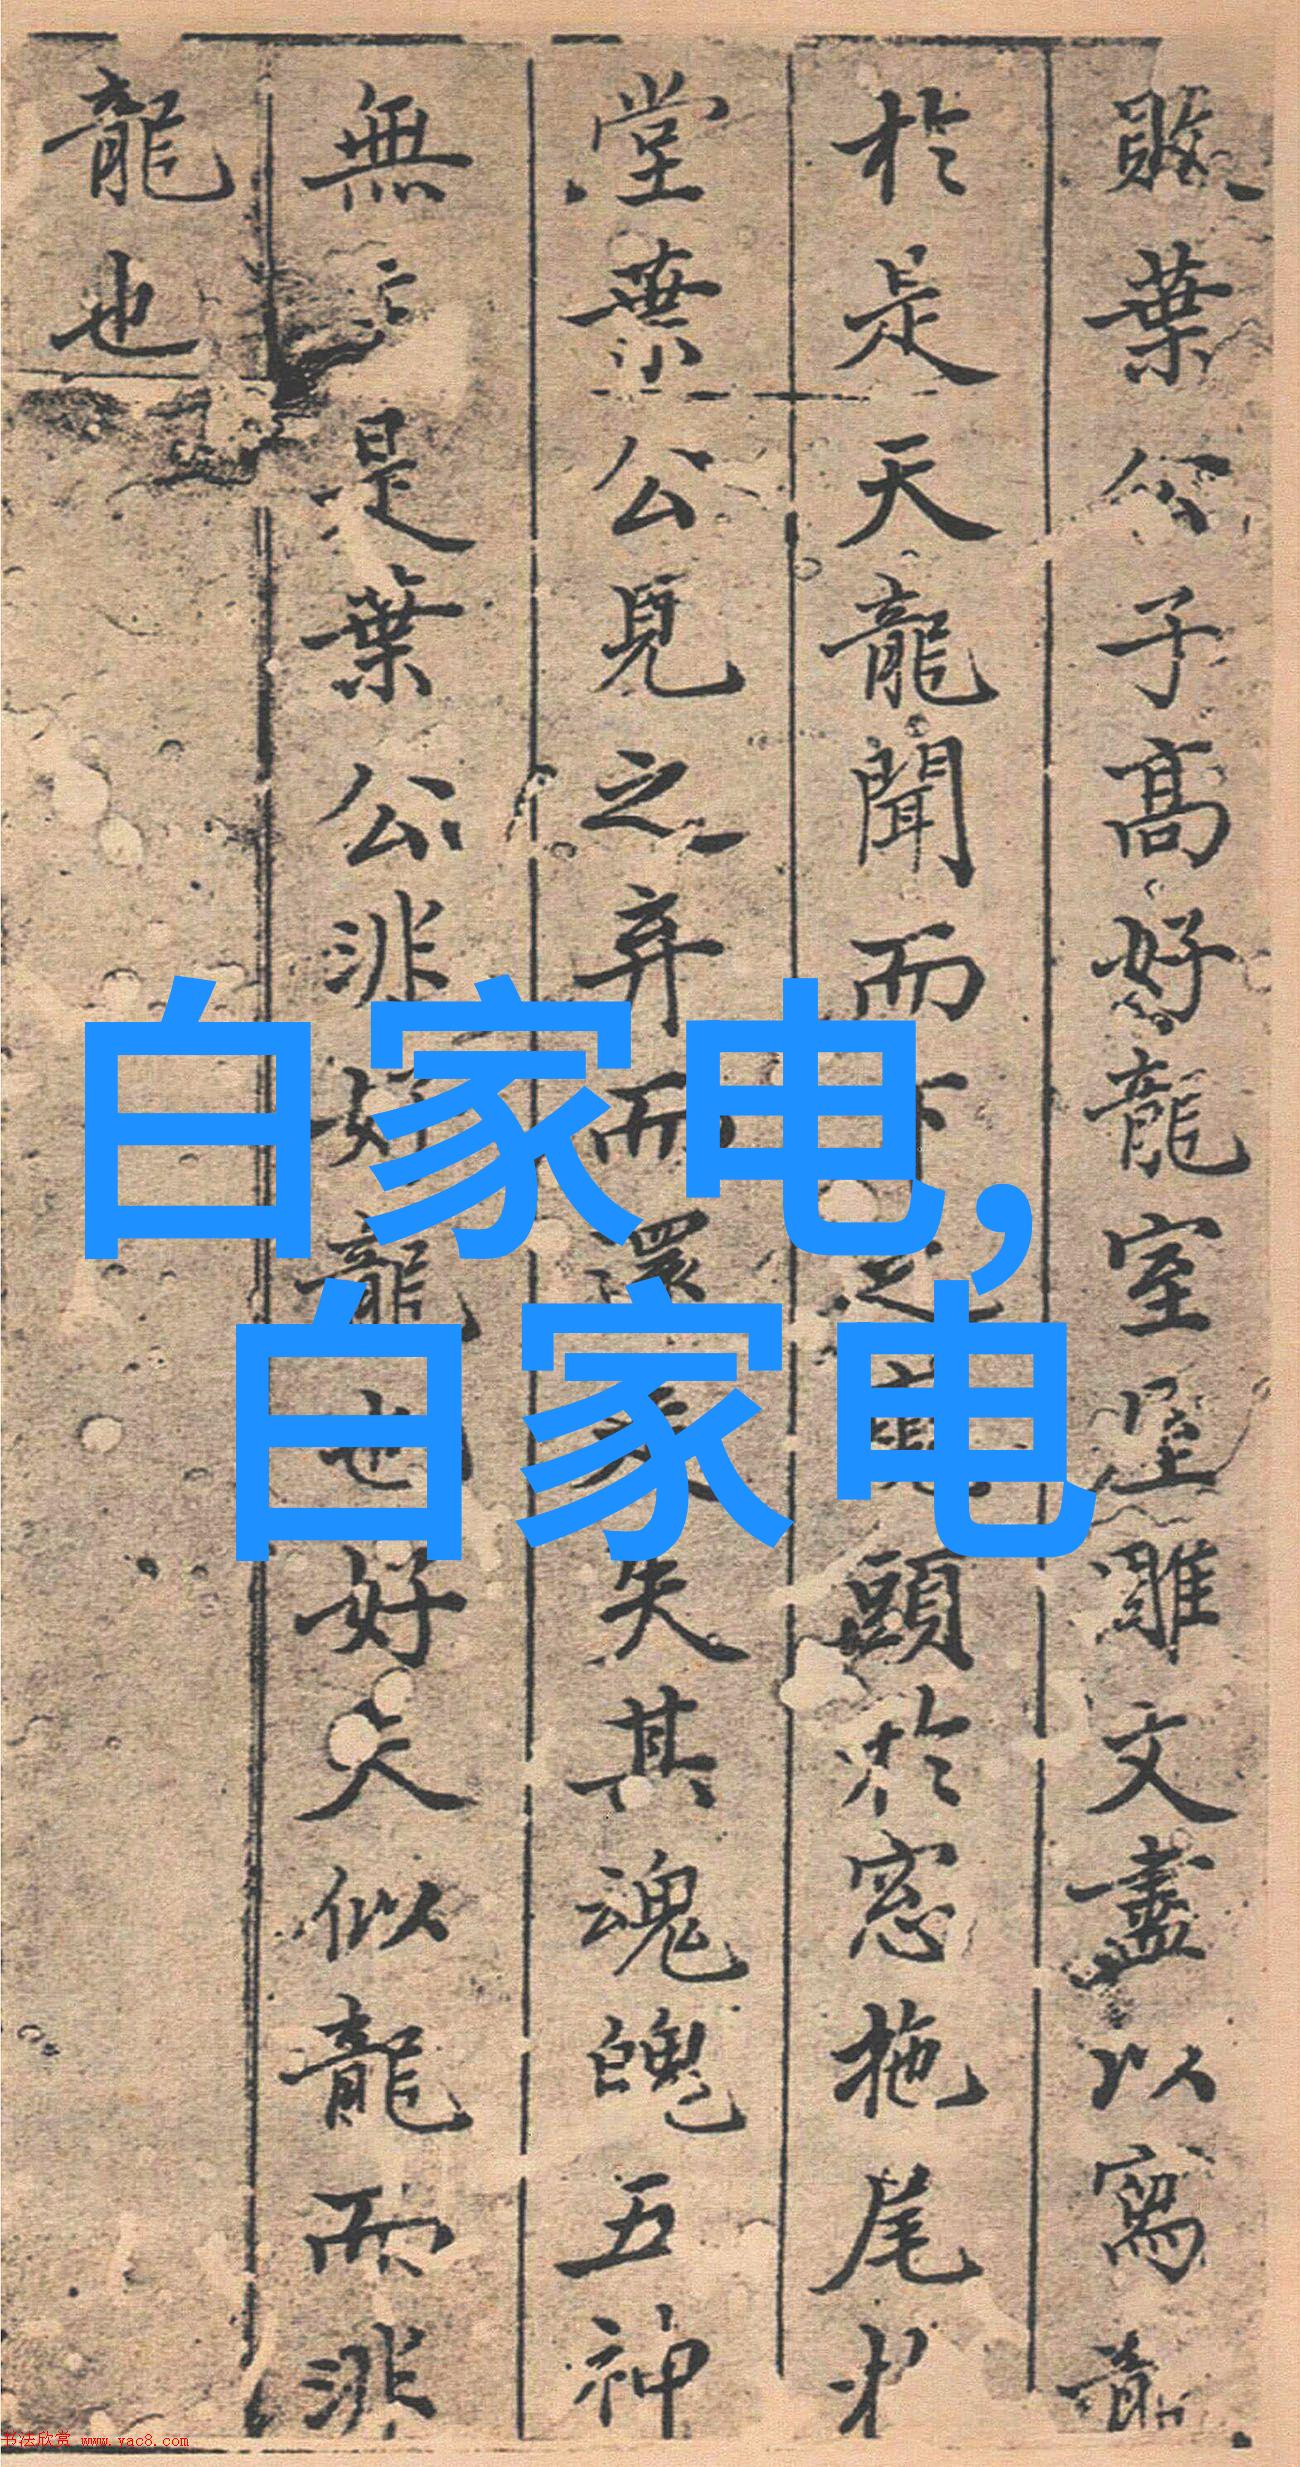 敗葉公子高好龍室屋雕文盡以寫龍
於是天龍聞而下之窺頭於窓拖尾於
堂葉公見之弃而還走失其魂魄五神
無主是葉公非好龍也好夫似龍而非
龍也
白家电,
白家电
书法欣赏 www.yac8.com